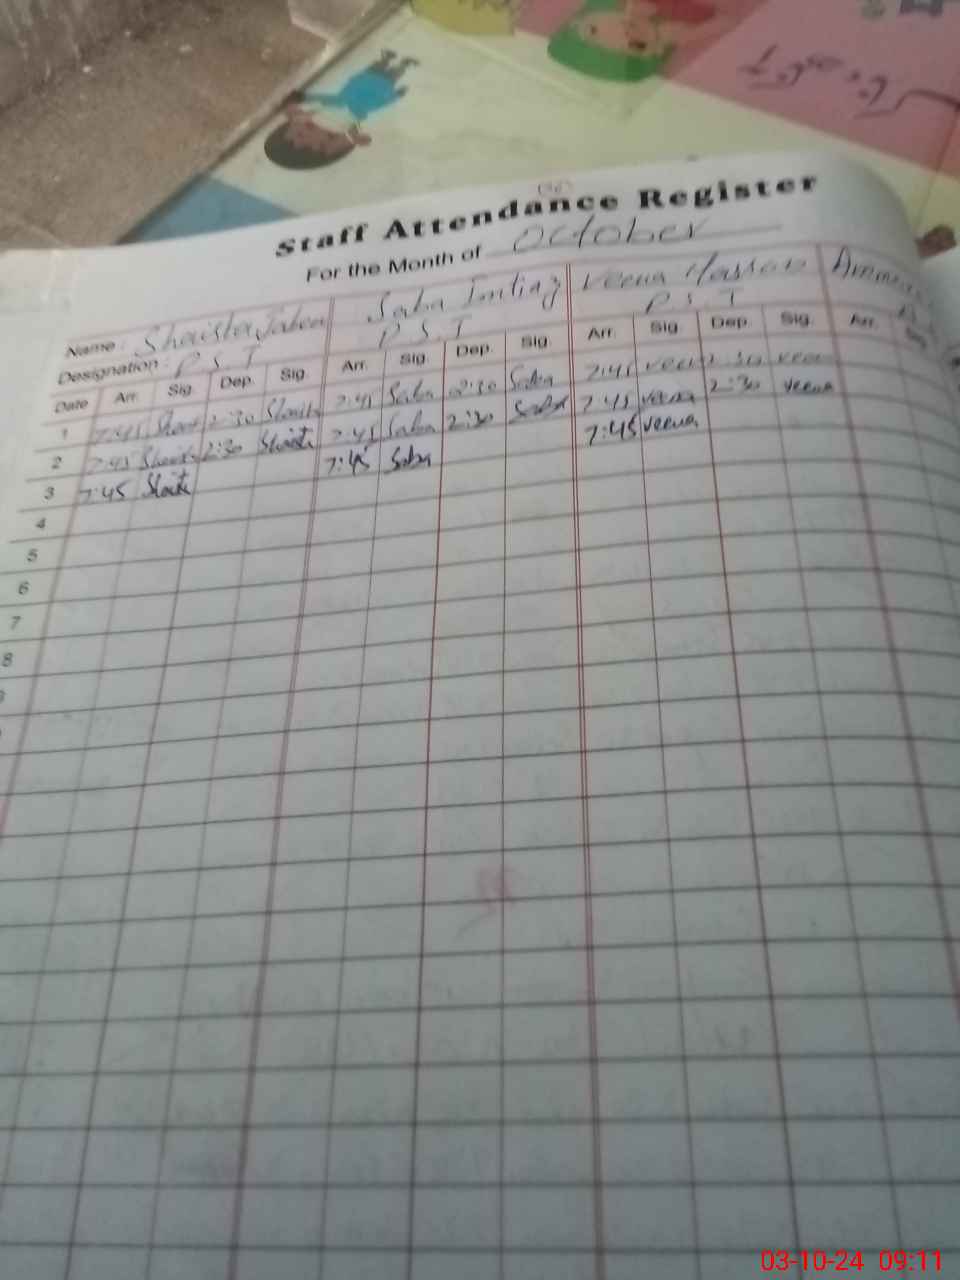 Staff Attendance Register
For the Month of October
Name: Shaista Jabeen Saba Imtiaz Veena Hassan
Designation: P.S.T P.S.T P.S.T
Date Arr. Sig. Dep. Sig. Arr. Sig. Dep. Sig. Arr. Sig. Dep. Sig. Arr. Sig.
1 7:45 2:30 7:45 Saba 2:30 Saba 7:45 veena 2:30 veena
2 7:45 2:30 7:45 Saba 2:30 Saba 7:45 veena 2:30 veena
3 7:45 7:45 Saba 7:45 veena
4
5
6
7
8
03-10-24 09:11